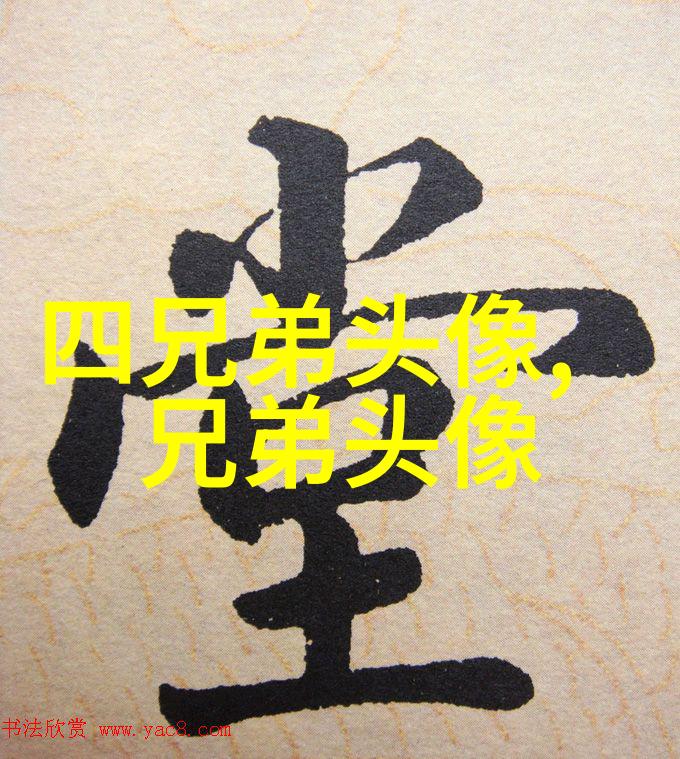 堂
四兄弟头像,
兄弟头像
书法欣赏 www.yac8.com